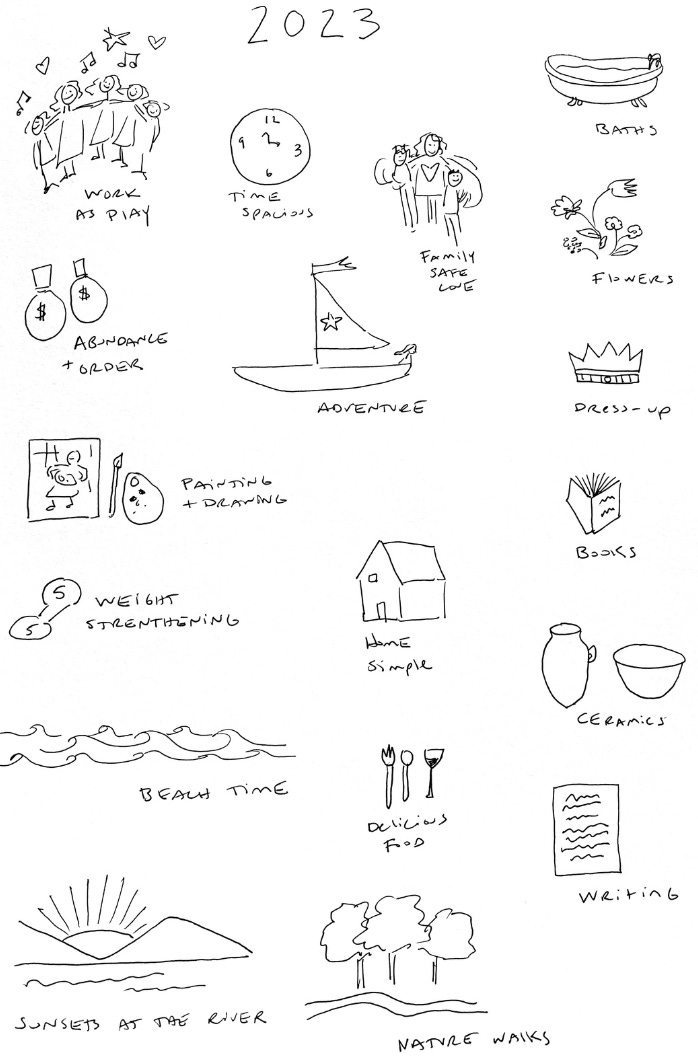 2023
WORK
AS PLAY
12
9
3
6
TIME
SPACIOUS
FAMILY
SAFE
LOVE
BATHS
FLOWERS
$
$
ABUNDANCE
+ ORDER
ADVENTURE
DRESS-UP
PAINTING
+ DRAWING
BOOKS
5
5
WEIGHT
STRENTHENING
Home
Simple
CERAMICS
BEACH TIME
Delicious
FOOD
WRITING
SUNSETS AT THE RIVER
NATURE WALKS